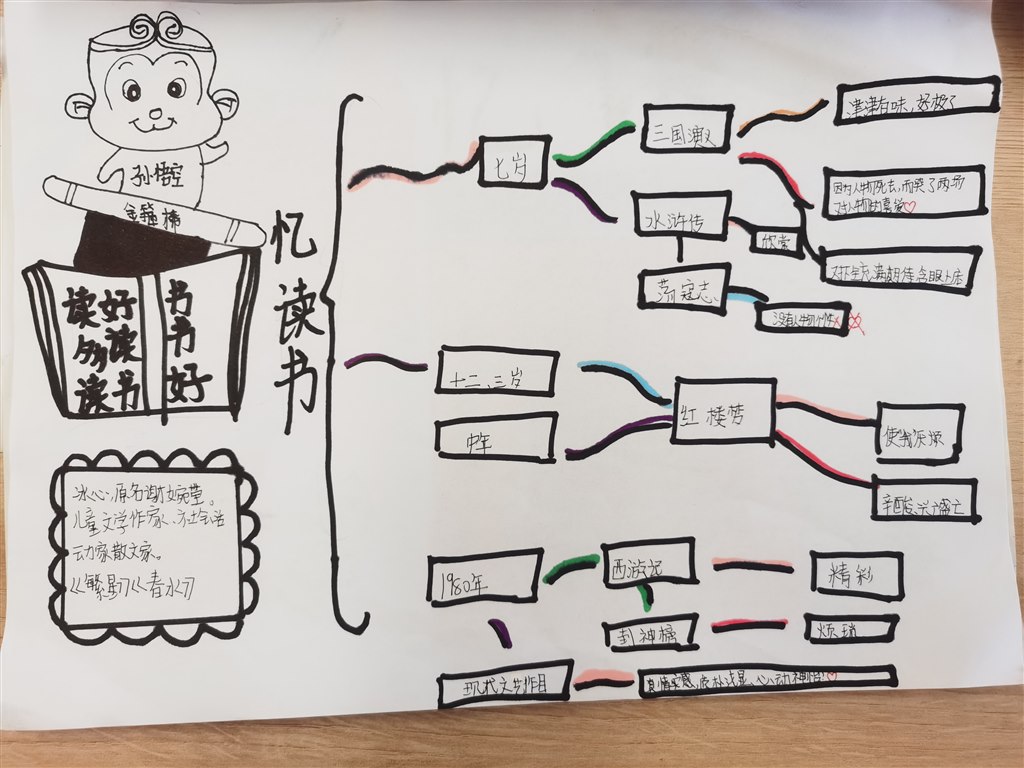 孙悟空
金箍棒
读好书
多读书
读书好
冰心,原名谢婉莹。
儿童文学作家、社会活
动家散文家。
《繁星》《春水》
忆读书
七岁
三国演义
津津有味,好极了
因为人物死去,而哭了两场
对人物的喜爱
水浒传
欣赏
对下回充满期待含眼上床
荡寇志
没有人物个性
十二、三岁
中年
红楼梦
使我厌烦
辛酸,兴亡盛亡
1980年
西游记
精彩
封神榜
烦琐
现代文艺作目
真情实感,质朴浅显,心动神怡